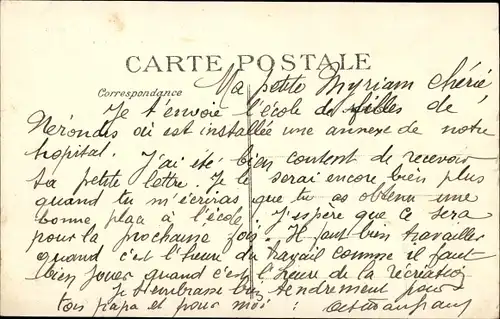 CARTE POSTALE
Correspondance
Ma petite Myriam chérie
Je t'envoie l'école de filles de
Nérondes où est installée une annexe de notre
hopital. J'ai été bien content de recevoir
ta petite lettre. Je le serai encore bien plus
quand tu m'écriras que tu as obtenu une
bonne place à l'école. J'espère que ce sera
pour la prochaine fois. Il faut bien travailler
quand c'est l'heure du travail comme il faut
bien jouer quand c'est l'heure de la récréation
Je t'embrasse bien tendrement pour
ton papa et pour moi :